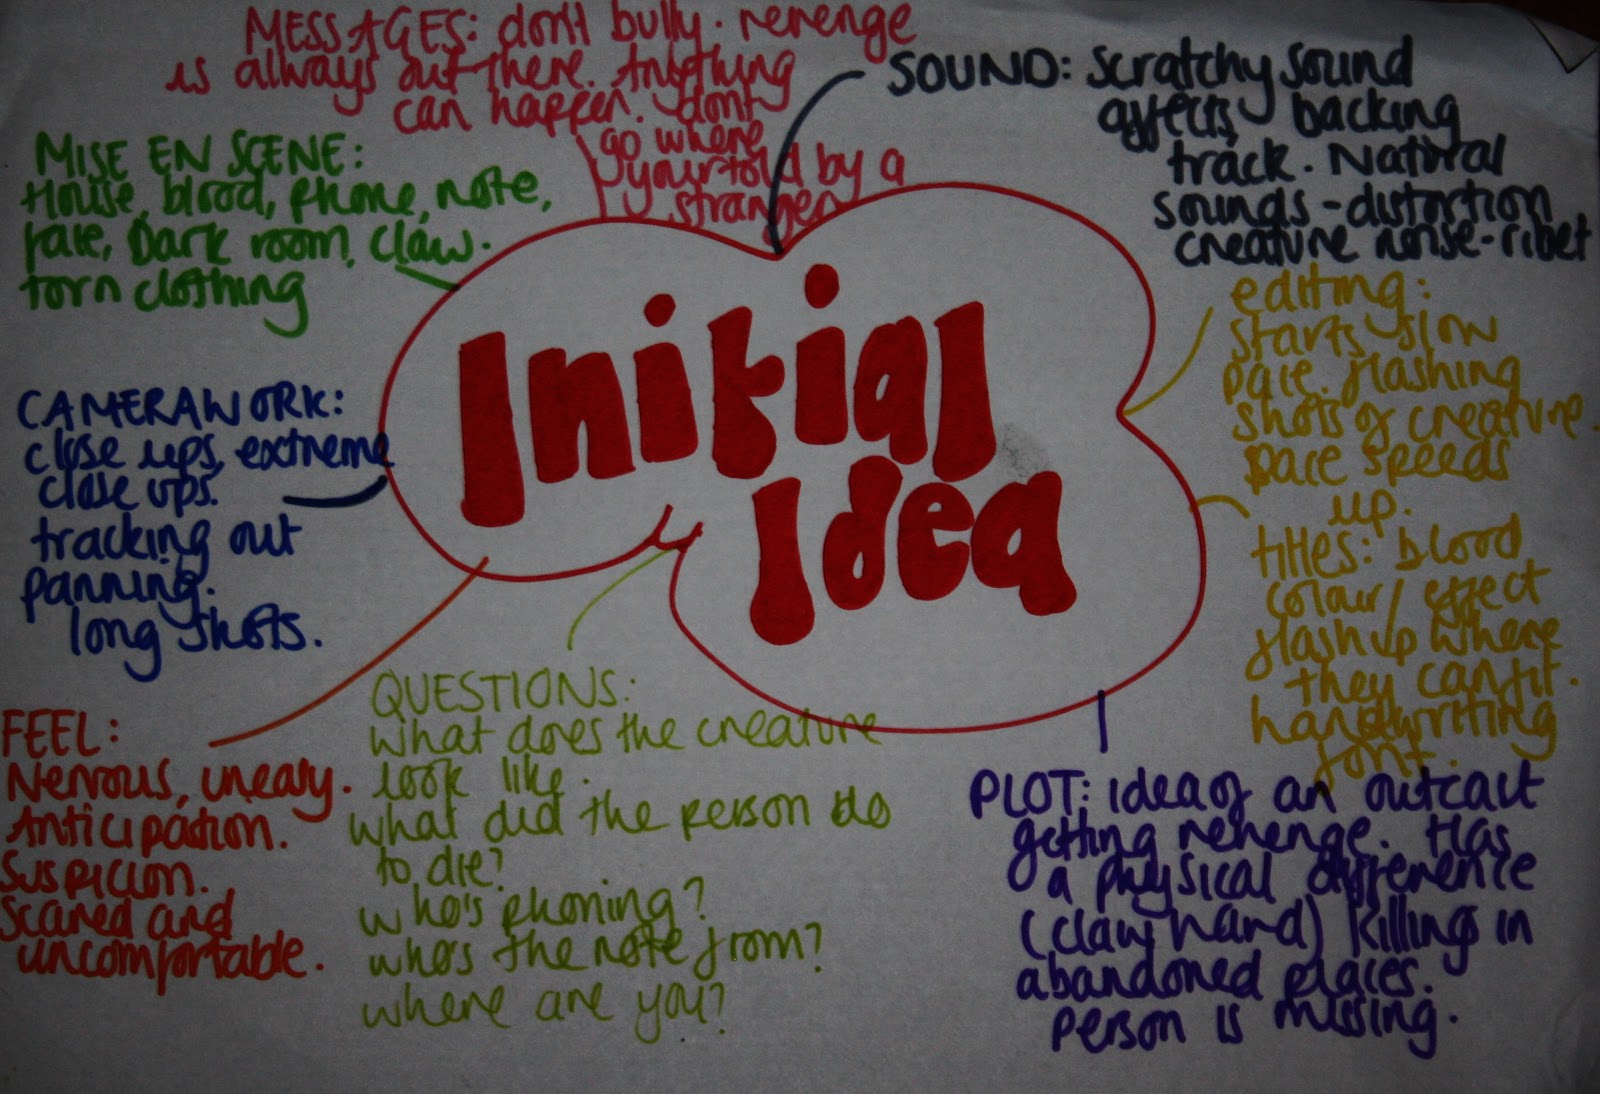 MESSAGES: don't bully. revenge
is always out there. Anything
can happen. dont
go where
your told by a
stranger
SOUND: scratchy sound
affects, backing
track. Natural
sounds - distortion
creature noise - ribet
MISE EN SCENE:
House, blood, phone, note,
Dark room, claw.
torn clothing
Initial
Idea
editing:
starts slow
pace. flashing
shots of creature.
pace speeds
up.
titles: blood
colour/effect
flash up where
they can fit.
handwriting
font.
CAMERAWORK:
close ups, extreme
close ups.
tracking out
panning.
long shots.
FEEL:
Nervous, uneasy.
Anticipation.
Suspicion.
Scared and
uncomfortable.
QUESTIONS:
what does the creature
look like.
what did the person do
to die?
who's phoning?
who's the note from?
where are you?
PLOT: idea of an outcast
getting revenge. Has
a physical difference
(claw hand) killing in
abandoned places.
person is missing.